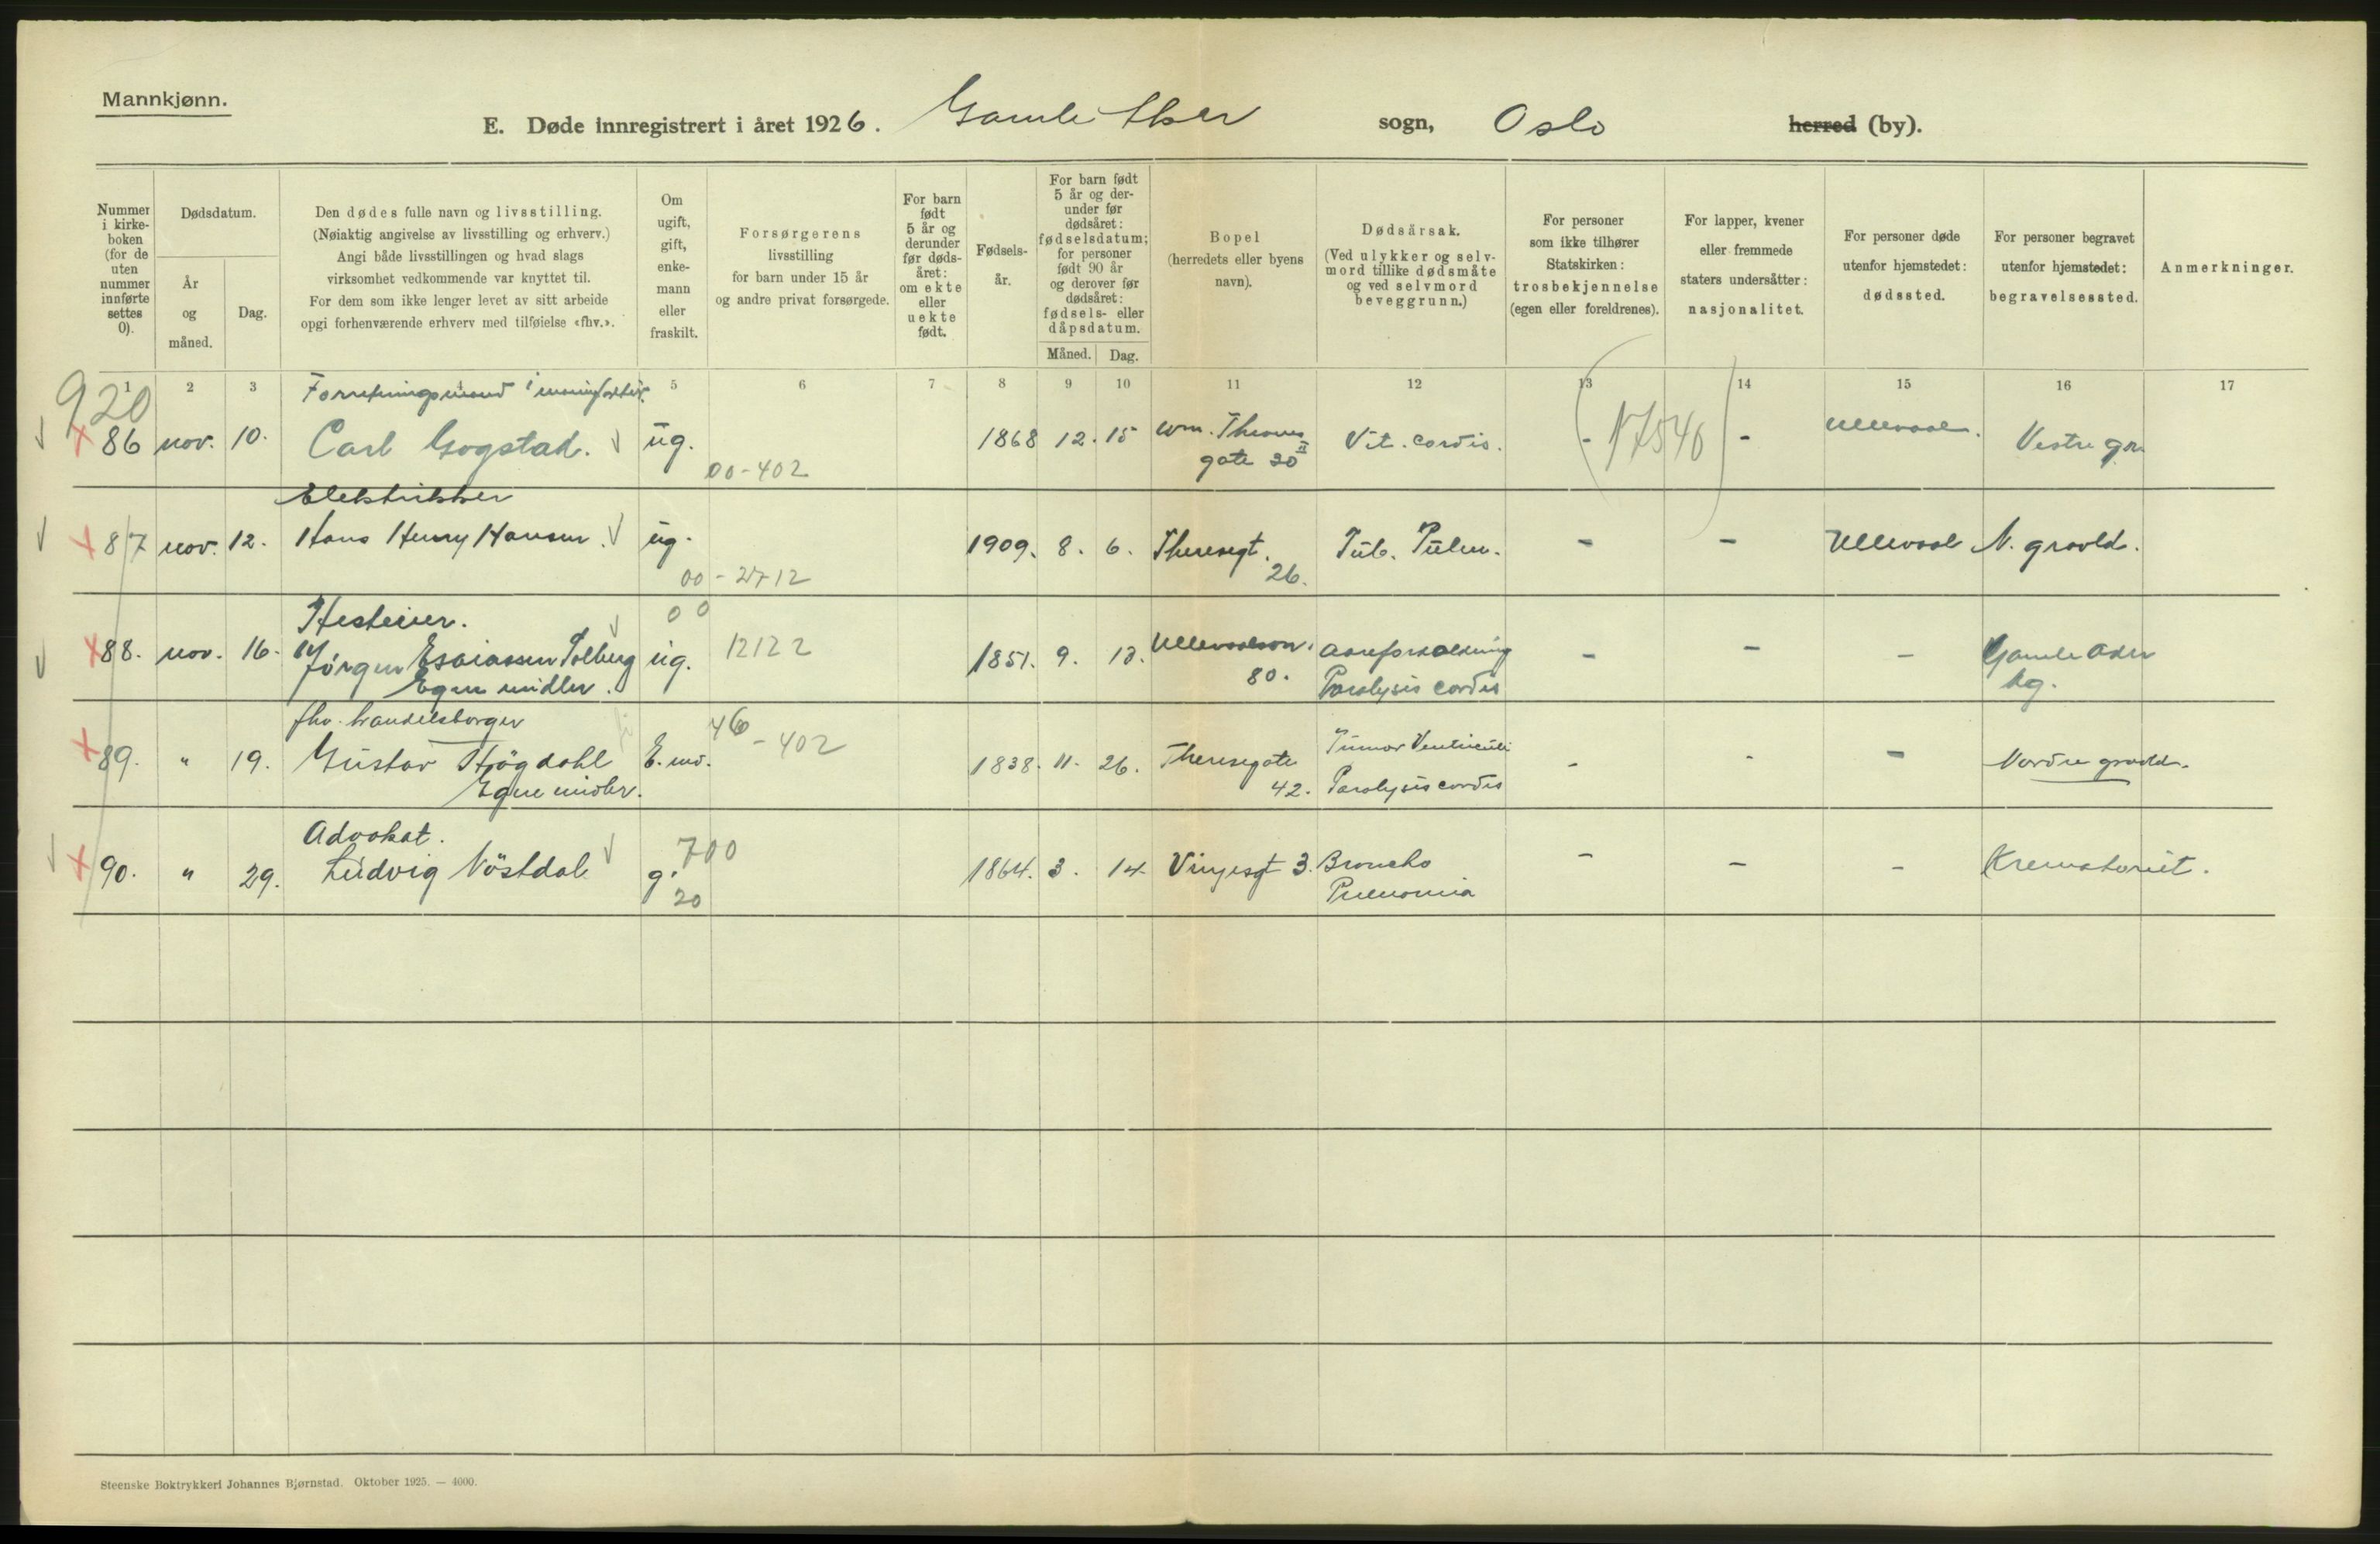 Mannkjønn.
E. Døde innregistrert i året 1926. Gamle Aker sogn, Oslo herred (by).
Nummer i kirkeboken (for de uten nummer innførte settes 0).
Dødsdatum.
År og måned.
Dag.
Den dødes fulle navn og livsstilling.
(Nøiaktig angivelse av livsstilling og erhverv.)
Angi både livsstillingen og hvad slags
virksomhet vedkommende var knyttet til.
For dem som ikke lenger levet av sitt arbeide
opgi forhenværende erhverv med tilføielse «fhv.».
Om ugift, gift, enkemann eller fraskilt.
Forsørgerens
livsstilling
for barn under 15 år
og andre privat forsørgede.
For barn født 5 år og derunder før dødsåret: om ekte eller uekte født.
Fødselsår.
For barn født 5 år og derunder før dødsåret: fødselsdatum; for personer født 90 år og derover før dødsåret: fødsels- eller dåpsdatum.
Måned. Dag.
Bopel
(herredets eller byens
navn).
Dødsårsak.
(Ved ulykker og selvmord tillike dødsmåte og ved selvmord beveggrunn.)
For personer
som ikke tilhører
Statskirken:
trosbekjennelse
(egen eller foreldrenes).
For lapper, kvener
eller fremmede
staters undersåtter:
nasjonalitet.
For personer døde
utenfor hjemstedet:
dødssted.
For personer begravet
utenfor hjemstedet:
begravelsessted.
Anmerkninger.
1 2 3 4 5 6 7 8 9 10 11 12 13 14 15 16 17
920
Forretningsmand i
86 nov. 10. Carl Gogstad. ug. 1868 12. 15 Wm. Thranes Vit. cordis. - 17540 - Ullevaal. Vestre gr.
gate 30 II
00-402
Elektrikker
87 nov. 12. Hans Henry Hansen. ug. 1909. 8. 6. Theresegt. Tub. Pulm. - - Ullevaal N. gravld.
26.
00-2712
Hesteier. 00
88. nov. 16. Jørgen Esaiassen Solberg ug. 12122 1851. 9. 13. Ullevaalsvn. Aareforkalkning - - - Gamle Aker
Egne midler. 80. Paralysis cordis kg.
fhv. handelsborger 46-402
89. " 19. Gustav Högdahl E.md. 1838. 11. 26. Theresegate Tumor Ventriculi - - - Nordre gravld.
Egne midler. 42. Paralysis cordis
Advokat. 700
90. " 29. Ludvig Vöstdal g. 1864. 3. 14. Vinjesgt 3. Broncho - - - Krematoriet.
20 Pneumonia
Steenske Boktrykkeri Johannes Bjørnstad. Oktober 1925. — 4000.